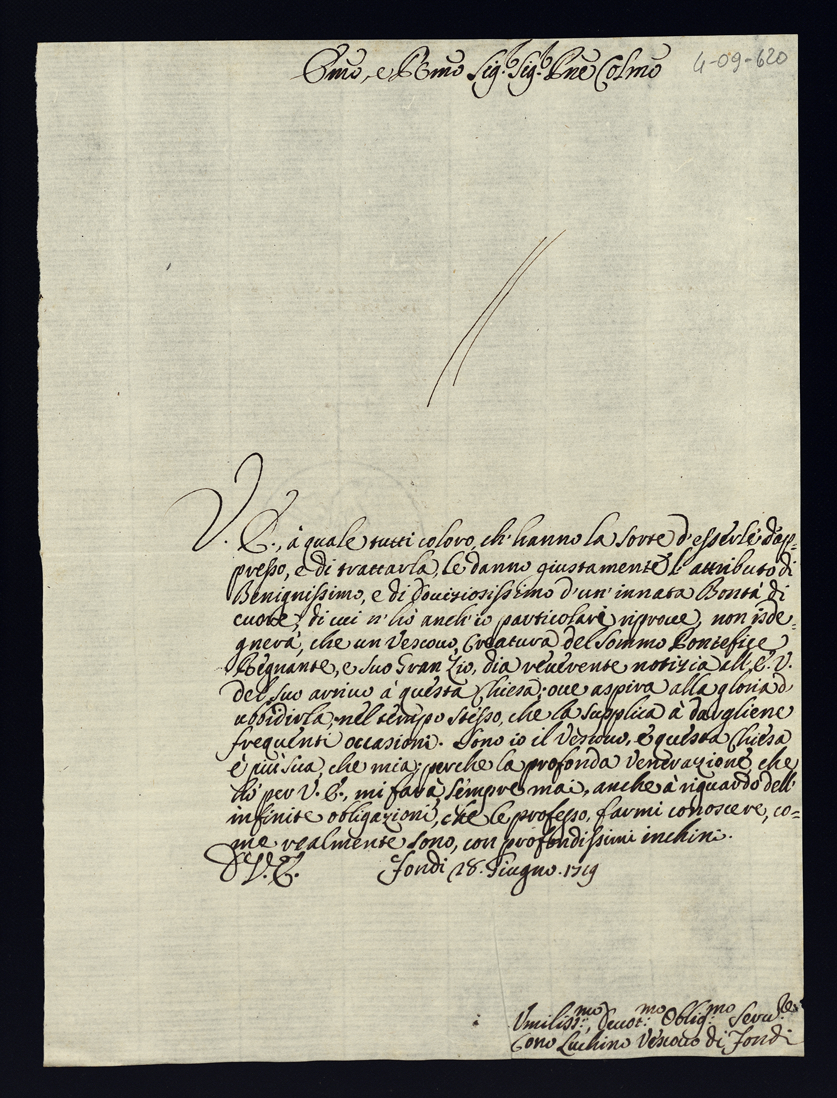 Emo, e Rmo Sig.r Sig.r Pne Colmo
4-09-620
V. E., à quale tutti coloro, ch'hanno la sorte d'esserle d'ap-
presso, e di trattarla, le danno giustamente l'attributo di
Benignissimo, e di Doviziosissimo d'un'innata Bontà di
cuore; di cui n'hò anch'io particolari riprove, non isde-
gnerà, che un Vescovo, Creatura del Sommo Pontefice
Regnante, e suo Gran Zio, dia reverente notizia all'E. V.
del suo arrivo à questa Chiesa; ove aspira alla gloria d'
ubbidirla, nel tempo stesso, che la supplica à dargliene
frequenti occasioni. Sono io il Vescovo, e questa Chiesa
è più sua, che mia; perche la profonda venerazione, che
hò per V. E., mi farà sempre mai, anche à riguardo dell'
infinite obligazioni, che le professo, farmi conoscere, co-
me realmente sono, con profondissimi inchini.
D V. E. Fondi 28. Giugno. 1719
Umilis.mo, Devot.mo Oblig.mo Serv.re
Vescovo di Fondi